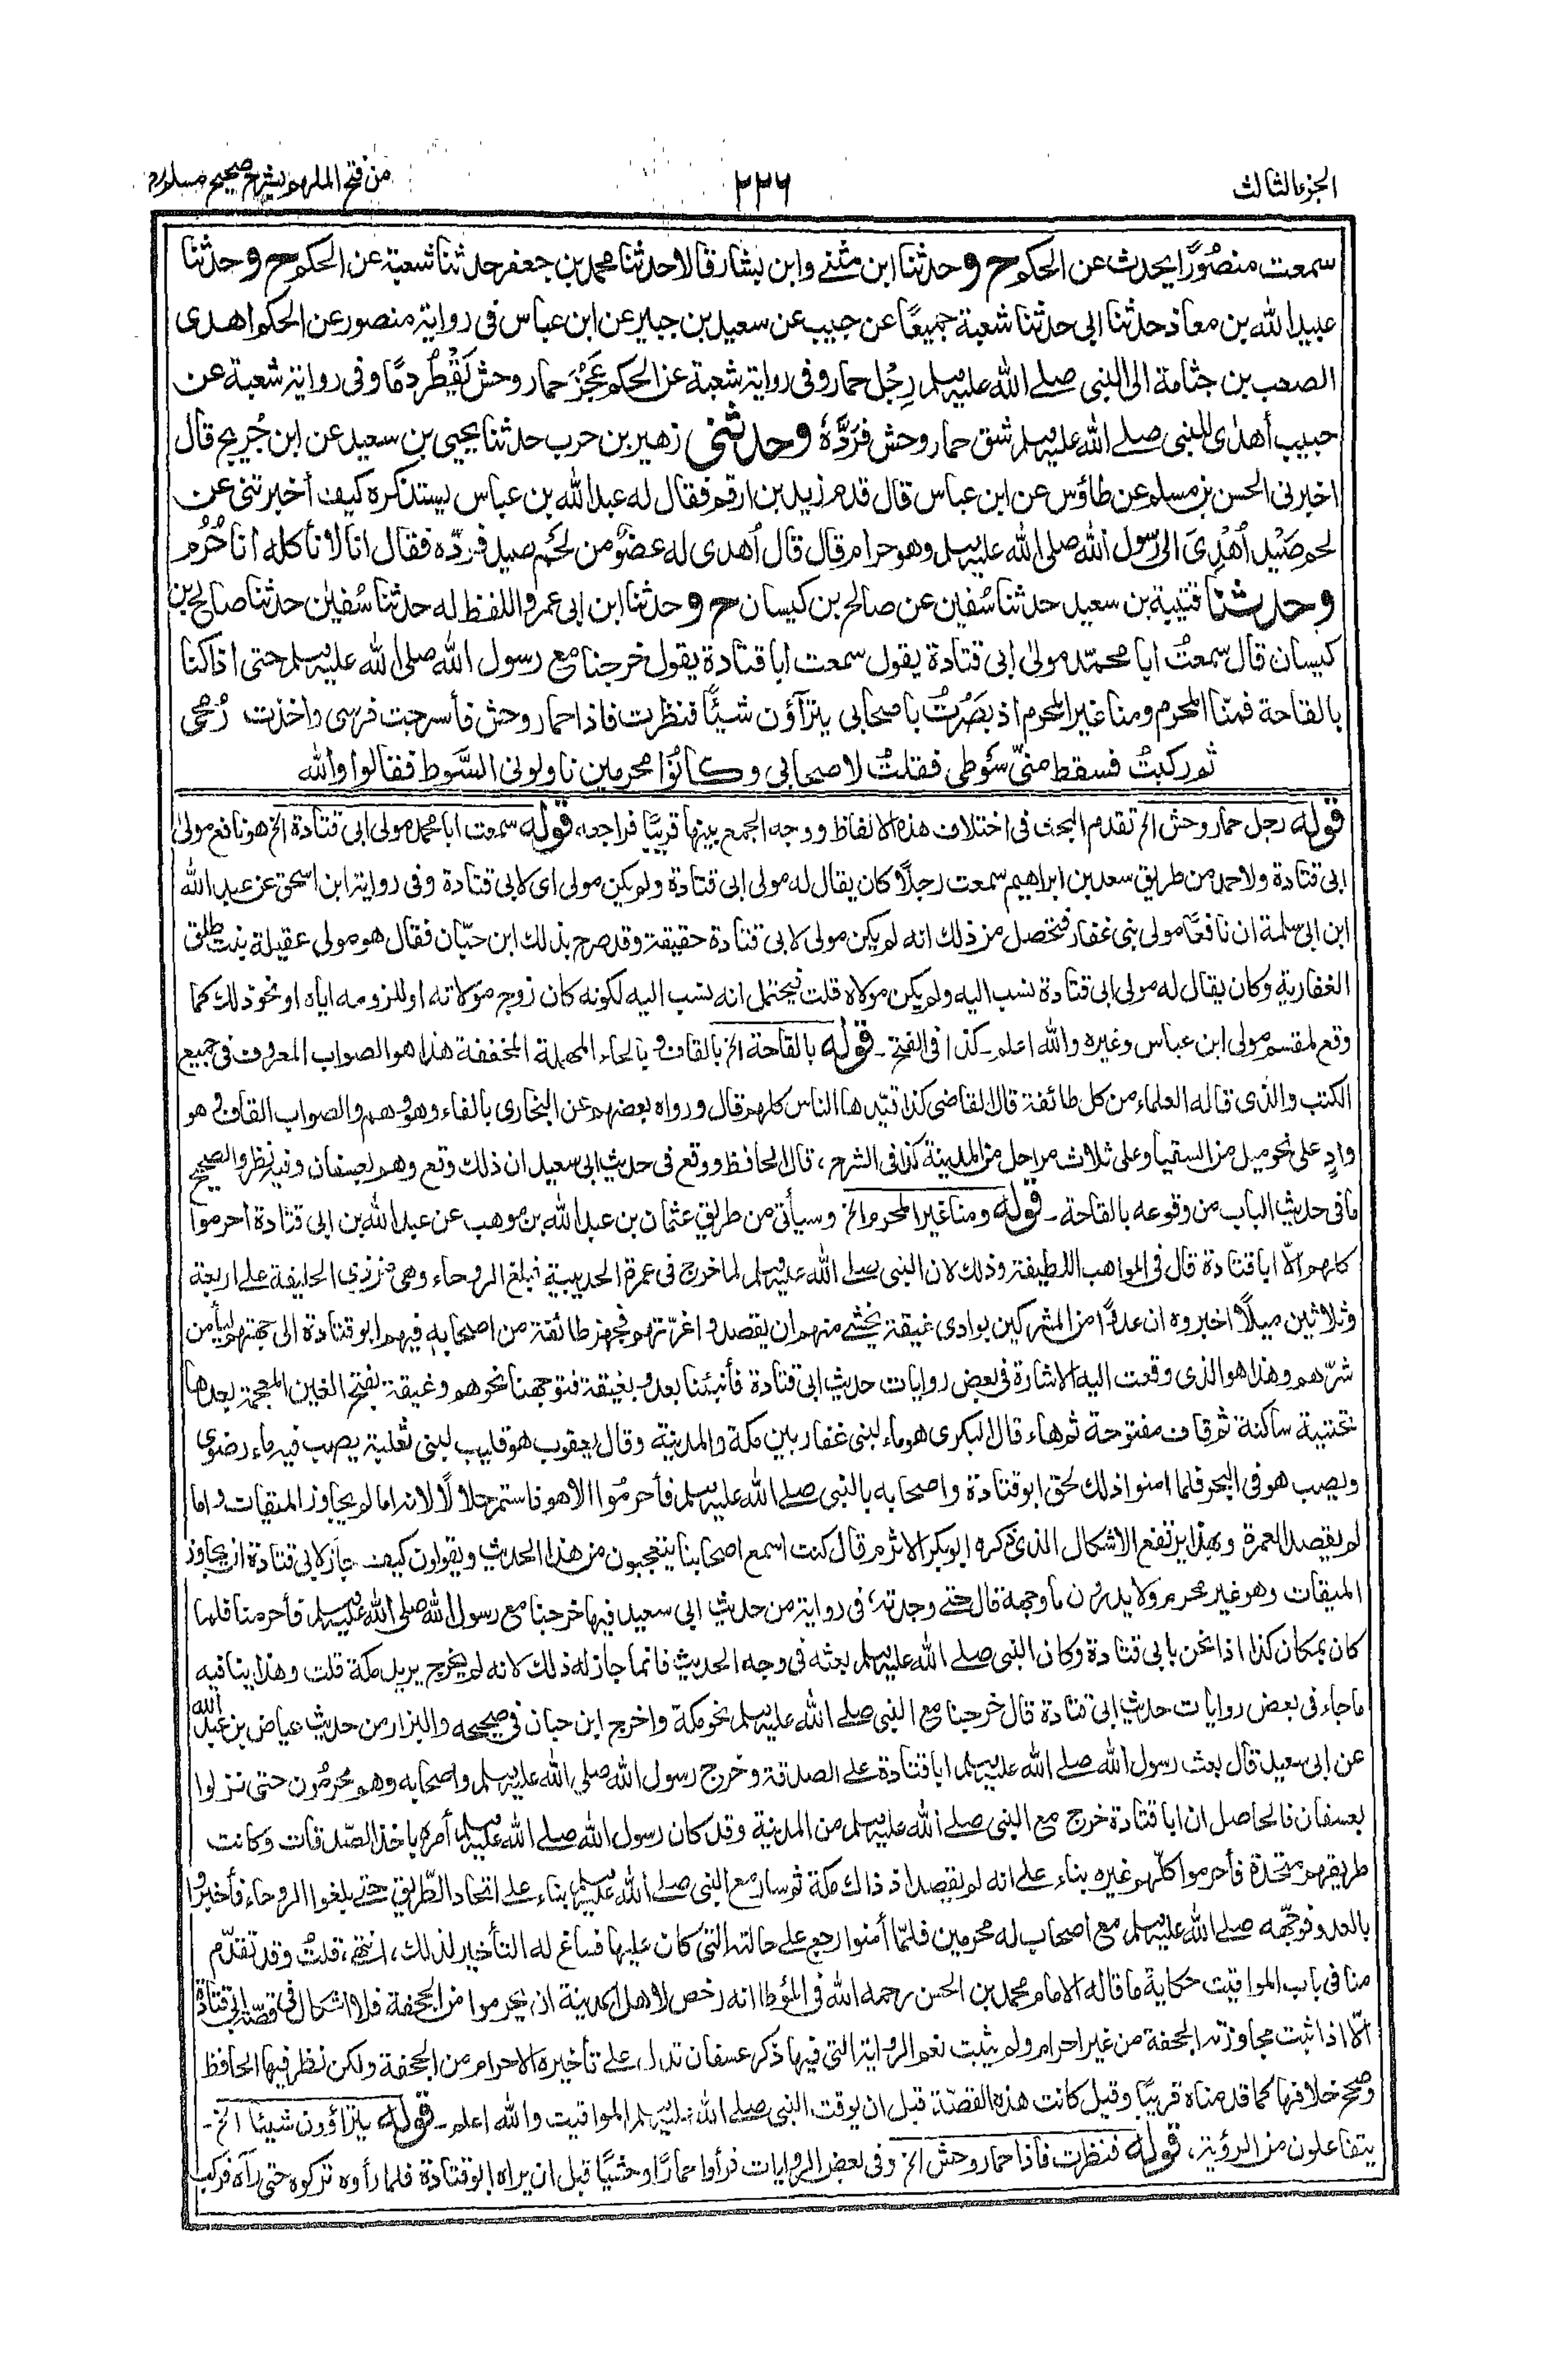 الجزء الثالث
٢٣٦
من فتح الملهم بشرح صحيح مسلم
سمعت منصُورًا يحدث عن الحكم ح وحدثنا ابن مثنى وابن بشار قالا حدثنا محمد بن جعفر حدثنا شعبة عن الحكم ح وحدثنا
عبيد الله بن معاذ حدثنا ابى حدثنا شعبة جميعًا عن حبيب عن سعيد بن جبير عن ابن عباس فى رواية منصور عن الحكم اهدى
الصعب بن جثامة الى النبى صلے الله عليه وسلم رِجْل حمار وفى رواية شعبة عن الحكم عَجُزَ حمار وحش يَقْطُر دمًا وفى رواية شعبة عن
حبيب أهدى للنبى صلے الله عليه وسلم شق حمار وحش فرَدَّهٗ وحدثنى زهير بن حرب حدثنا يحيى بن سعيد عن ابن جُريج قال
اخبرنى الحسن بن مسلم عن طاؤس عن ابن عباس قال قدم زيد بن ارقم فقال له عبد الله بن عباس يستذكره كيف أخبرتنى عن
لحم صَيْد أُهْدِىَ الى رسول الله صلى الله عليه وسلم وهو حرام قال قال أُهدى له عضوٌ من لحْم صيد فردّه فقال انا لا نأكله انا حُرُم
وحدثنا قتيبة بن سعيد حدثنا سُفين عن صالح بن كيسان ح وحدثنا ابن ابى عمر واللفظ له حدثنا سُفين حدثنا صالح بن
كيسان قال سمعتُ ابا محمّد مولىٰ ابى قتادة يقول سمعت ابا قتادة يقول خرجنا مع رسول الله صلى الله عليه وسلم حتى اذا كنا
بالقاحة فمنّا المحرم ومنا غير المحرم اذ بصُرْتُ باصحابى يتراؤن شيئًا فنظرت فاذا حمار وحش فأسرجت فرسى واخذت رُمحى
ثم ركبتُ فسقط منّى سَوْطى فقلتُ لاصحابى وكانوا محرمين ناولونى السَّوط فقالوا والله
قوله رجل حمار وحش الخ تقدم البحث فى اختلاف هذه الالفاظ ووجه الجمع بينها قريبًا فراجعه، قوله سمعت ابا محمد مولى ابى قتادة الخ هو نافع مولىٰ
ابى قتادة ولاحمد من طريق سعد بن ابراهيم سمعت رجلًا كان يقال له مولى ابى قتادة ولم يكن مولى اى لابى قتادة وفى رواية ابن اسحق عن عبد الله
ابن ابى سلمة ان نافعًا مولى بنى غفار فتحصل من ذلك انه لم يكن مولى لابى قتادة حقيقة وقد صرح بذلك ابن حبّان فقال هو مولى عقيلة بنت طلق
الغفارية وكان يقال له مولى ابى قتادة نسب اليه ولم يكن مولاه قلت فيحتمل انه نسب اليه لكونه كان زوج مولاته او للزومه اياه او نحو ذلك كما
وقع لمقسم مولى ابن عباس وغيره والله اعلم ـ كذا فى الفتح ـ قوله بالقاحة الخ بالقاف وبالحاء المهملة المخففة هذا هو الصواب المعروف فى جميع
الكتب والذى قاله العلماء من كل طائفة قال القاضى كذا قيّدها الناس كلهم قال ورواه بعضهم عن البخارى بالفاء وهو وهم والصواب القاف وهو
وادٍ على نحو ميل من السقيا وعلى ثلاث مراحل من المدينة كذا فى الشرح، قال الحافظ ووقع فى حديث ابى سعيد ان ذلك وقع وهم بعسفان وفيه نظر والصحيح
ما فى حديث الباب من وقوعه بالقاحة ـ قوله ومنا غير المحرم الخ وسيأتى من طريق عثمان بن عبد الله بن موهب عن عبد الله بن ابى قتادة احرموا
كلهم الّا ابا قتادة قال فى المواهب اللطيفة وذلك لان النبى صلے الله عليه وسلم لما خرج فى عمرة الحديبية فبلغ الروحاء وهى من ذى الحليفة على اربعة
وثلاثين ميلًا اخبروه ان عدوًا من المشركين بوادى غيقة يخشى منهم ان يقصدوا غرّتهم فجهز طائفة من اصحابه فيهم ابو قتادة الى جهتهم ليأمن
شرّهم وهذا هو الذى وقعت اليه الاشارة فى بعض روايات حديث ابى قتادة فأنبئنا بعدو بغيقة فتوجهنا نحوهم وغيقة بفتح الغين المعجمة بعدها
تحتية ساكنة ثم قاف مفتوحة ثم هاء قال البكرى هو ماء لبنى غفار بين مكة والمدينة وقال يعقوب هو قليب لبنى ثعلبة يصب فيه ماء رضوى
ويصب هو فى البحر فلما امنوا ذلك لحق ابو قتادة واصحابه بالنبى صلے الله عليه وسلم فأحرمُوا الا هو فاستمر حلالًا لانه اما لم يجاوز الميقات واما
لم يقصد العمرة وبهذا يرتفع الاشكال الذى ذكره ابو بكر الاثرم قال كنت اسمع اصحابنا يتعجبون من هذا الحديث ويقولون كيف جاز لابى قتادة ان يجاوز
الميقات وهو غير محرم ولا يدرون ما وجهه قال حتى وجدته فى رواية من حديث ابى سعيد فيها خرجنا مع رسول الله صلى الله عليه وسلم فأحرمنا فلما
كان بمكان كذا اذا نحن بابى قتادة وكان النبى صلے الله عليه وسلم بعثه فى وجه الحديث فانما جاز له ذلك لانه لم يخرج يريد مكة قلت وهذا ينافيه
ما جاء فى بعض روايات حديث ابى قتادة قال خرجنا مع النبى صلے الله عليه وسلم نحو مكة واخرج ابن حبان فى صحيحه والبزار من حديث عياض بن عبد الله
عن ابى سعيد قال بعث رسول الله صلے الله عليه وسلم ابا قتادة على الصدقة وخرج رسول الله صلى الله عليه وسلم واصحابه وهم محرمُون حتى نزلوا
بعسفان فالحاصل ان ابا قتادة خرج مع النبى صلے الله عليه وسلم من المدينة وقد كان رسول الله صلے الله عليه وسلم أمره باخذ الصّدقات وكانت
طريقهم متحدة فأحرموا كلّهم غيره بناء على انه لم يقصد اذ ذاك مكة ثم سار مع النبى صلے الله عليه وسلم بناء على اتحاد الطّريق حتى بلغوا الروحاء فأخبروا
بالعدو فوجّهه صلے الله عليه وسلم مع اصحاب له محرمين فلمّا أمنوا رجع على حالته التى كان عليها فساغ له التأخير لذلك، انتهى، قلتُ وقد تقدّم
منا فى باب المواقيت حكاية ما قاله الامام محمد بن الحسن رحمه الله فى المؤطا انه رخص لاهل المدينة ان يحرموا من الجحفة فلا اشكال فى قصّة ابى قتادة
الّا اذا ثبت مجاوزته الجحفة من غير احرام ولم يثبت نعم الرواية التى فيها ذكر عسفان تدل على تأخيره الاحرام من الجحفة ولكن نظر فيها الحافظ
وصحح خلافها كما قدمناه قريبًا وقيل كانت هذه القصّة قبل ان يوقت النبى صلے الله عليه وسلم المواقيت والله اعلم ـ قوله يتراؤون شيئا الخ ـ
يتفاعلون من الرؤية، قوله فنظرت فاذا حمار وحش الخ وفى بعض الروايات فرأوا حمارًا وحشيًا قبل ان يراه ابو قتادة فلما رأوه تركوه حتى رآه فركب